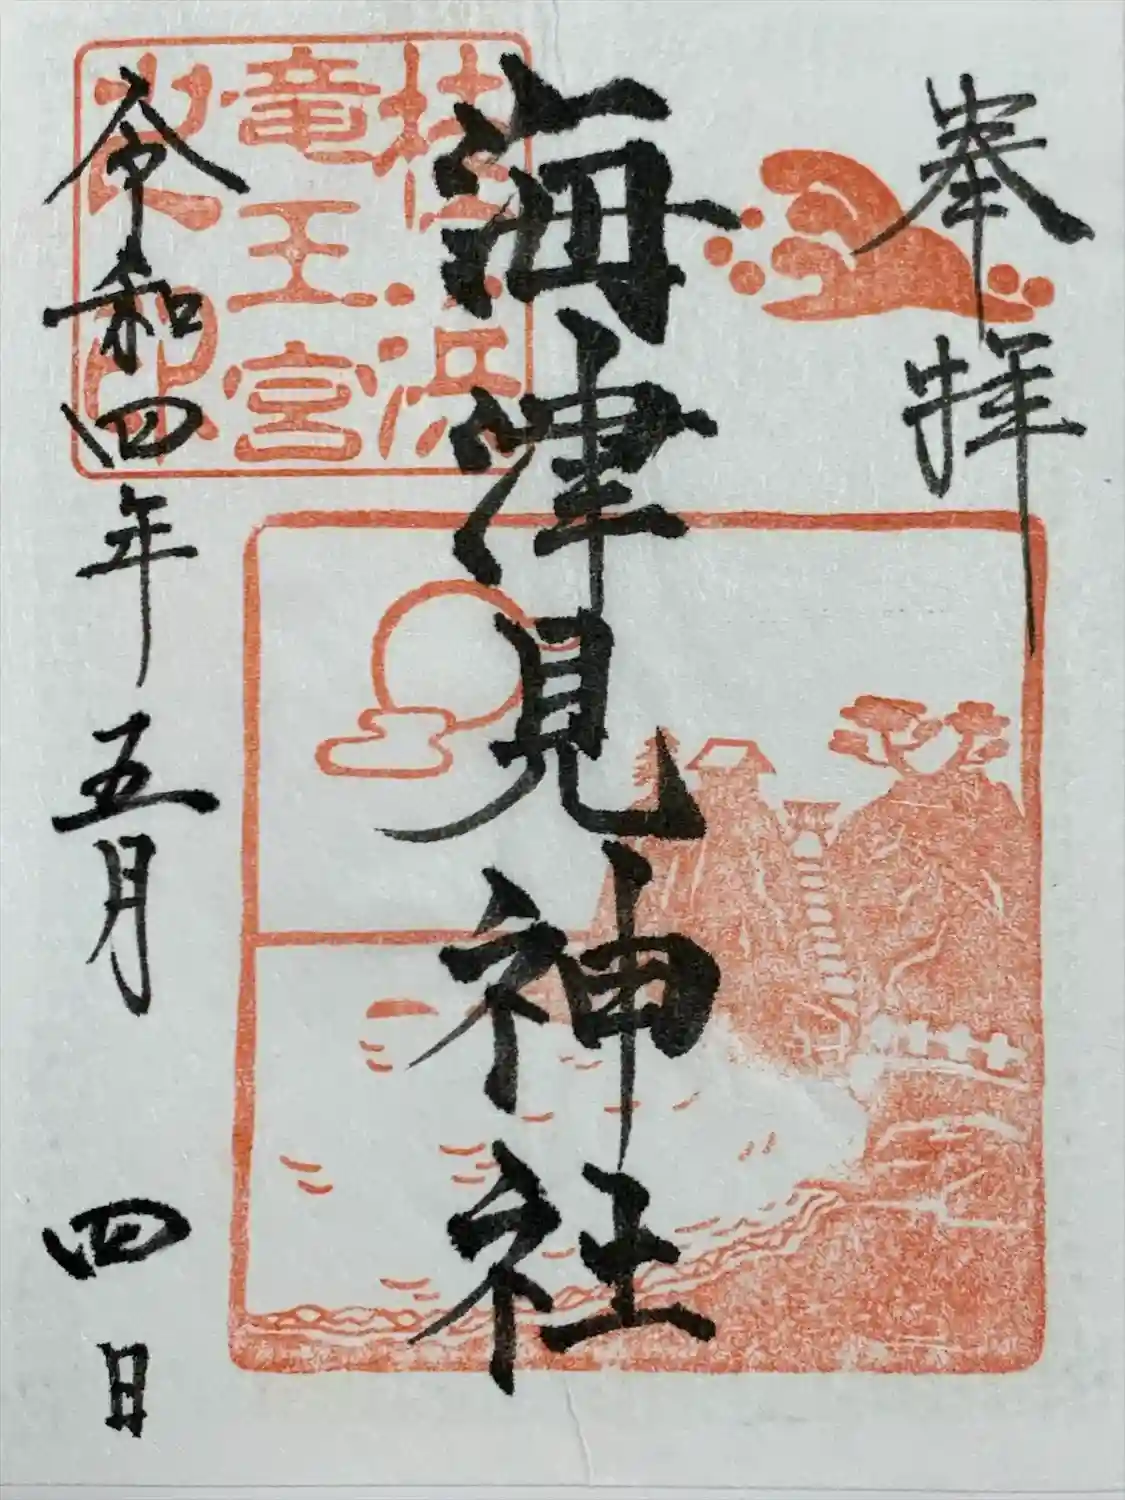 奉拝
海津見神社
令和四年五月四日
桂浜
竜王宮
之印